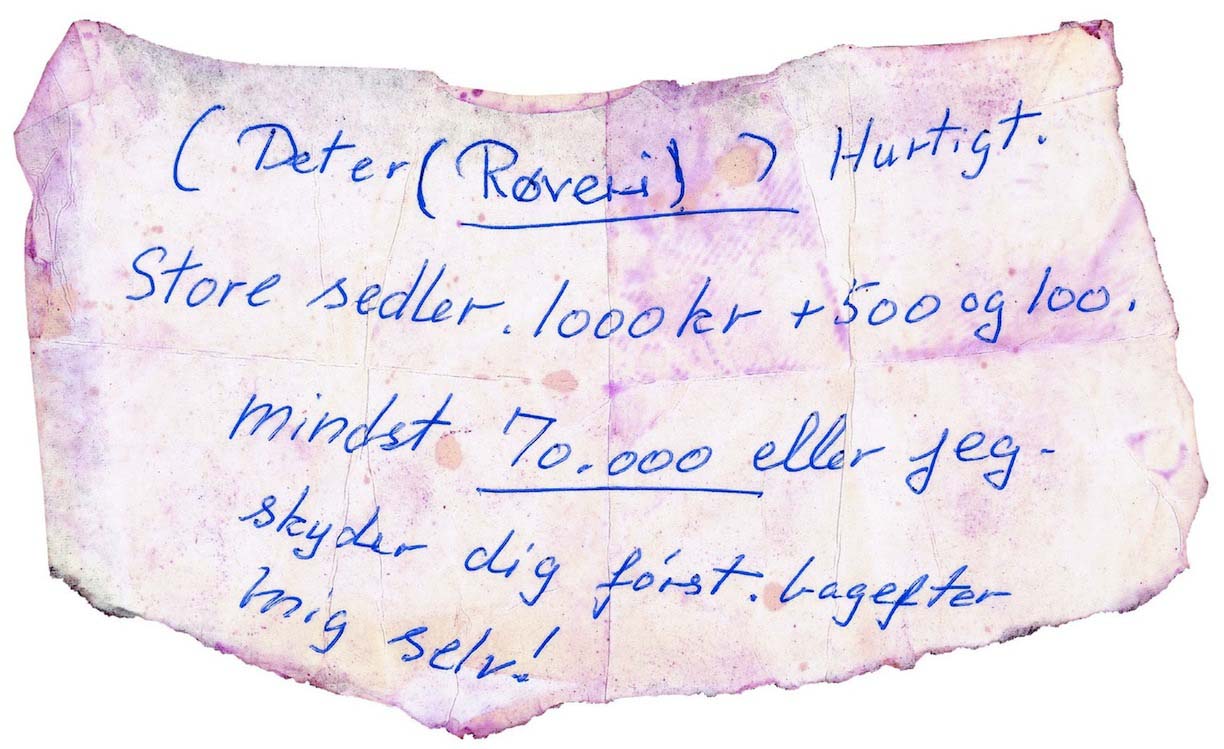 ( Deter ( Røveri ) ) Hurtigt.
Store sedler. 1000 kr + 500 og 100.
mindst 70.000 eller jeg-
skyder dig först. bagefter
mig selv!